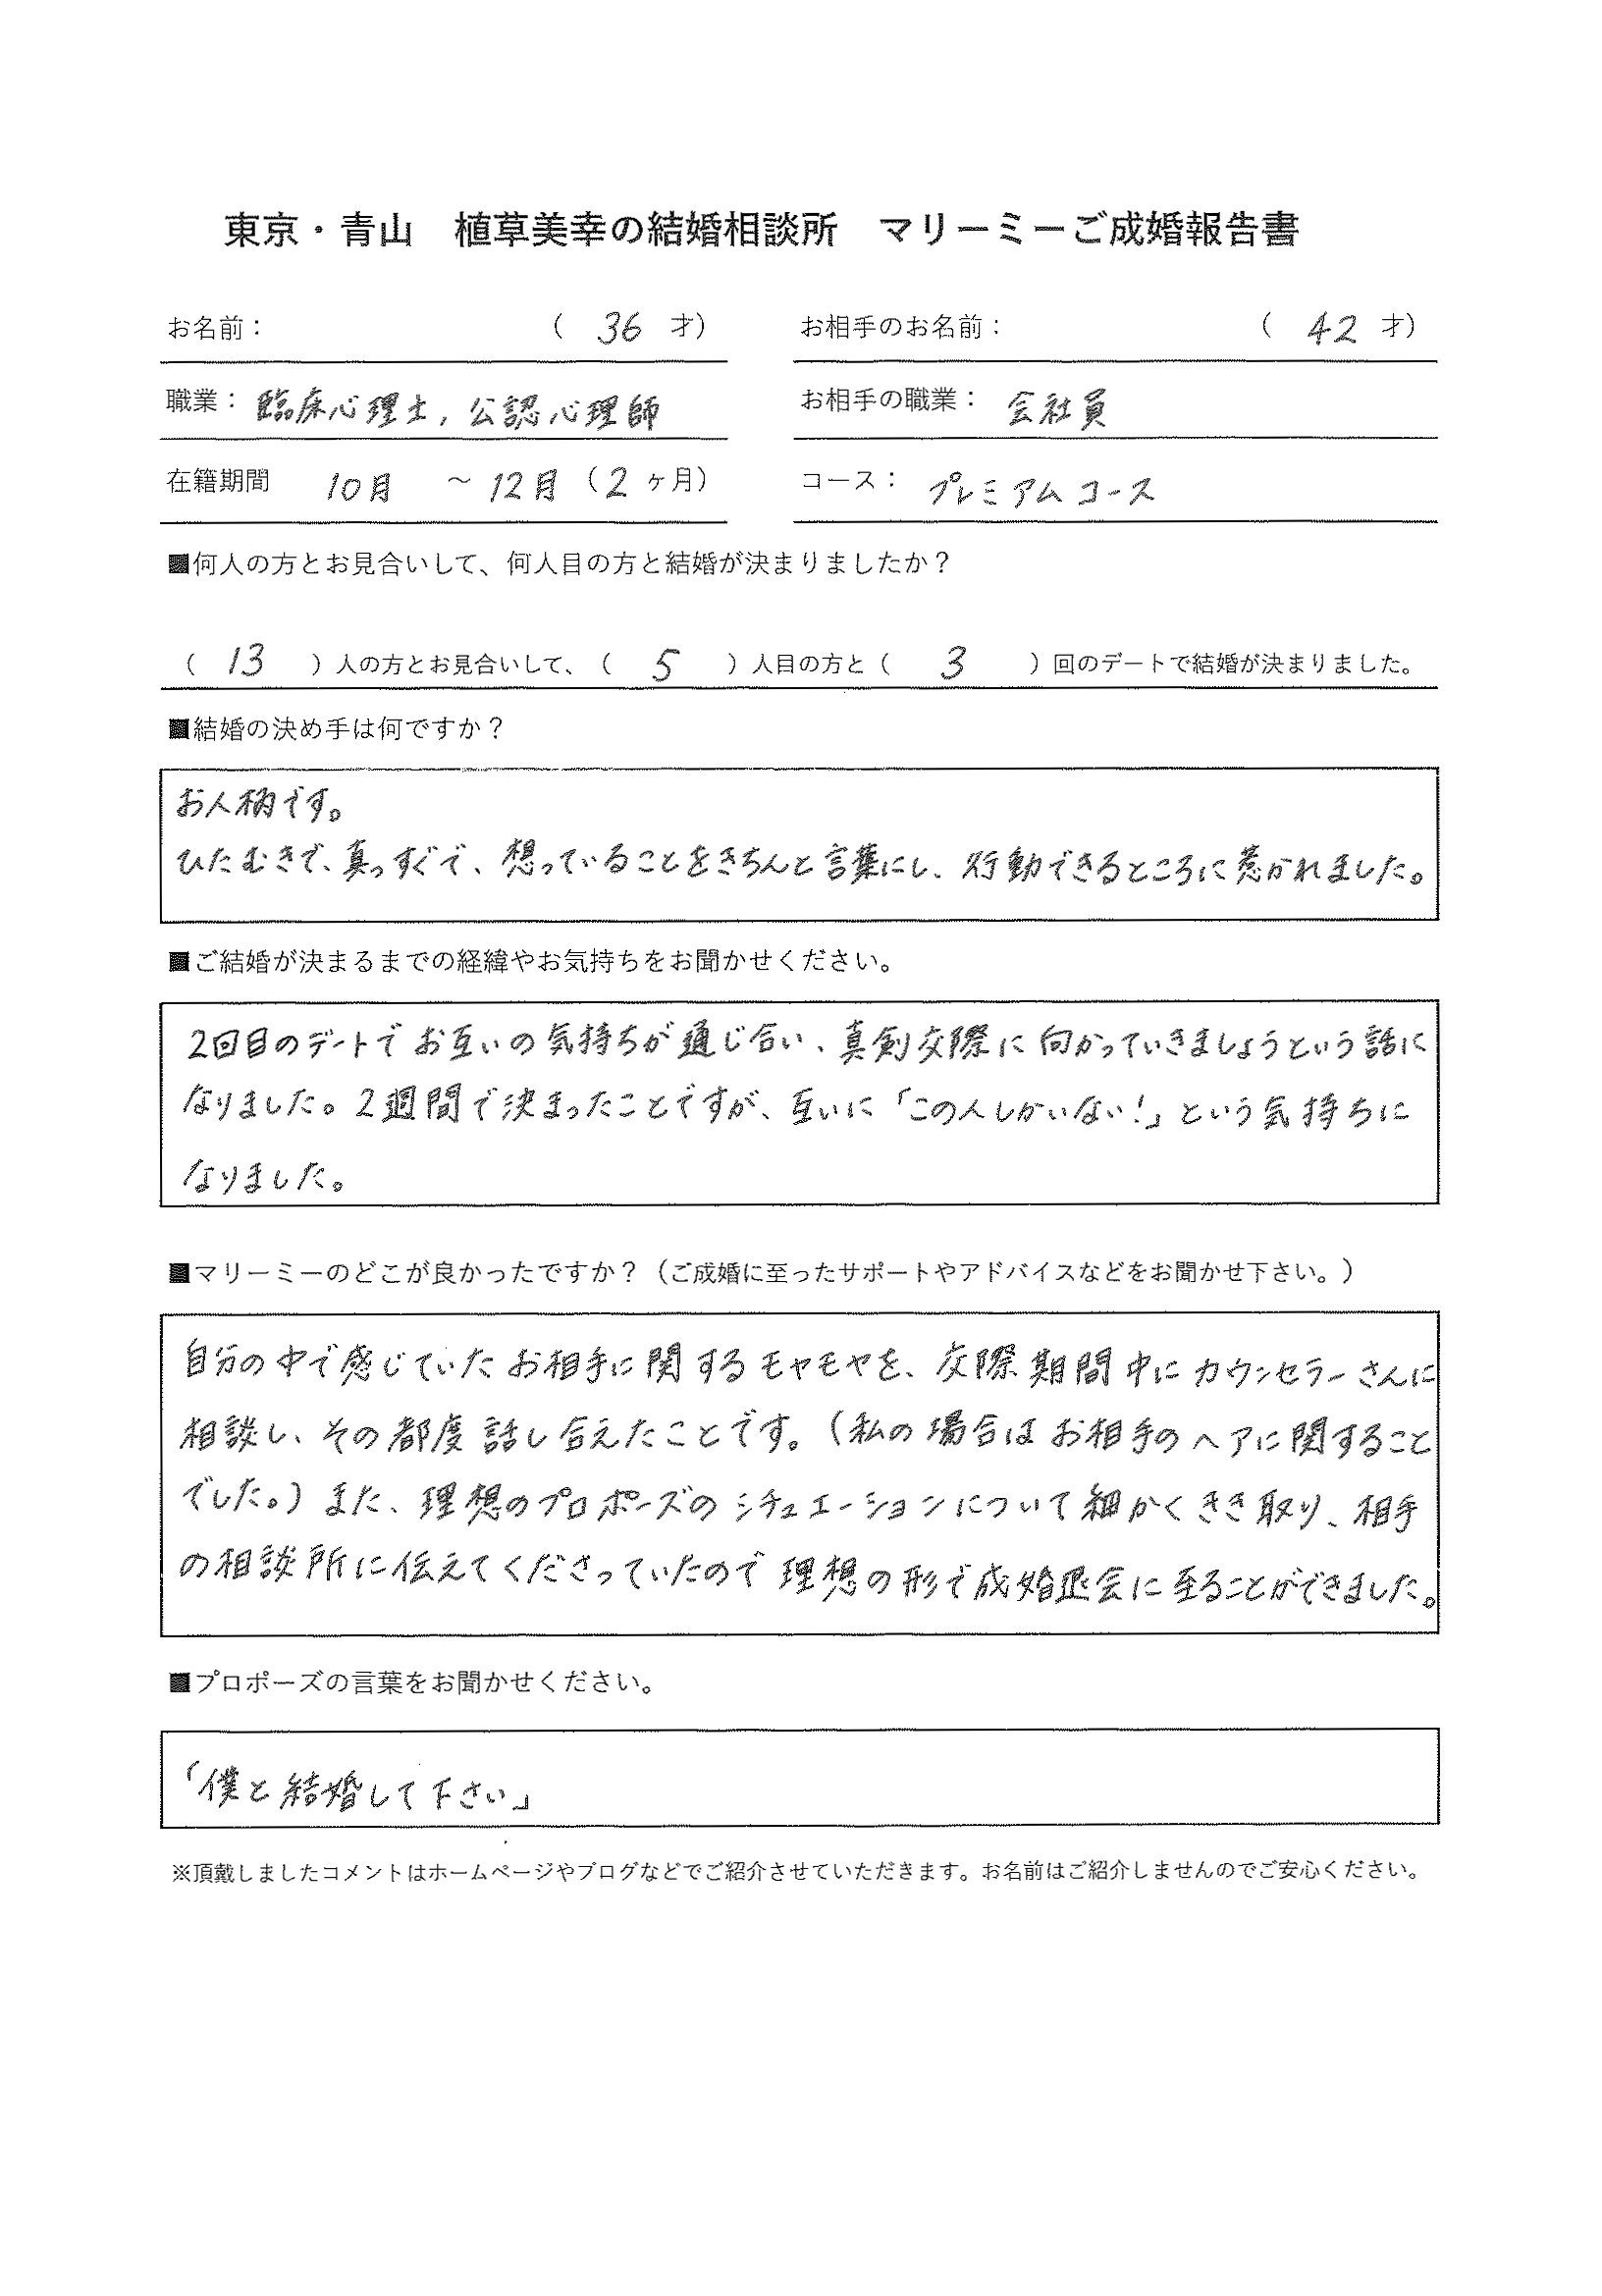 東京・青山　植草美幸の結婚相談所　マリーミーご成婚報告書
お名前：　（ 36 才）　お相手のお名前：　（ 42 才）
職業：臨床心理士, 公認心理師　お相手の職業：会社員
在籍期間　10月　～ 12月（2 ヶ月）　コース：プレミアムコース
■何人の方とお見合いして、何人目の方と結婚が決まりましたか？
（ 13 ）人の方とお見合いして、（ 5 ）人目の方と（ 3 ）回のデートで結婚が決まりました。
■結婚の決め手は何ですか？
お人柄です。
ひたむきで、真っすぐで、想っていることをきちんと言葉にし、行動できるところに惹かれました。
■ご結婚が決まるまでの経緯やお気持ちをお聞かせください。
2回目のデートでお互いの気持ちが通じ合い、真剣交際に向かっていきましょうという話に
なりました。2週間で決まったことですが、互いに「この人しかいない！」という気持ちに
なりました。
■マリーミーのどこが良かったですか？（ご成婚に至ったサポートやアドバイスなどをお聞かせ下さい。）
自分の中で感じていたお相手に関するモヤモヤを、交際期間中にカウンセラーさんに
相談し、その都度話し合えたことです。（私の場合はお相手のヘアに関すること
でした。）また、理想のプロポーズのシチュエーションについて細かくきき取り、相手
の相談所に伝えてくださっていたので理想の形で成婚退会に至ることができました。
■プロポーズの言葉をお聞かせください。
「僕と結婚して下さい」
※頂戴しましたコメントはホームページやブログなどでご紹介させていただきます。お名前はご紹介しませんのでご安心ください。